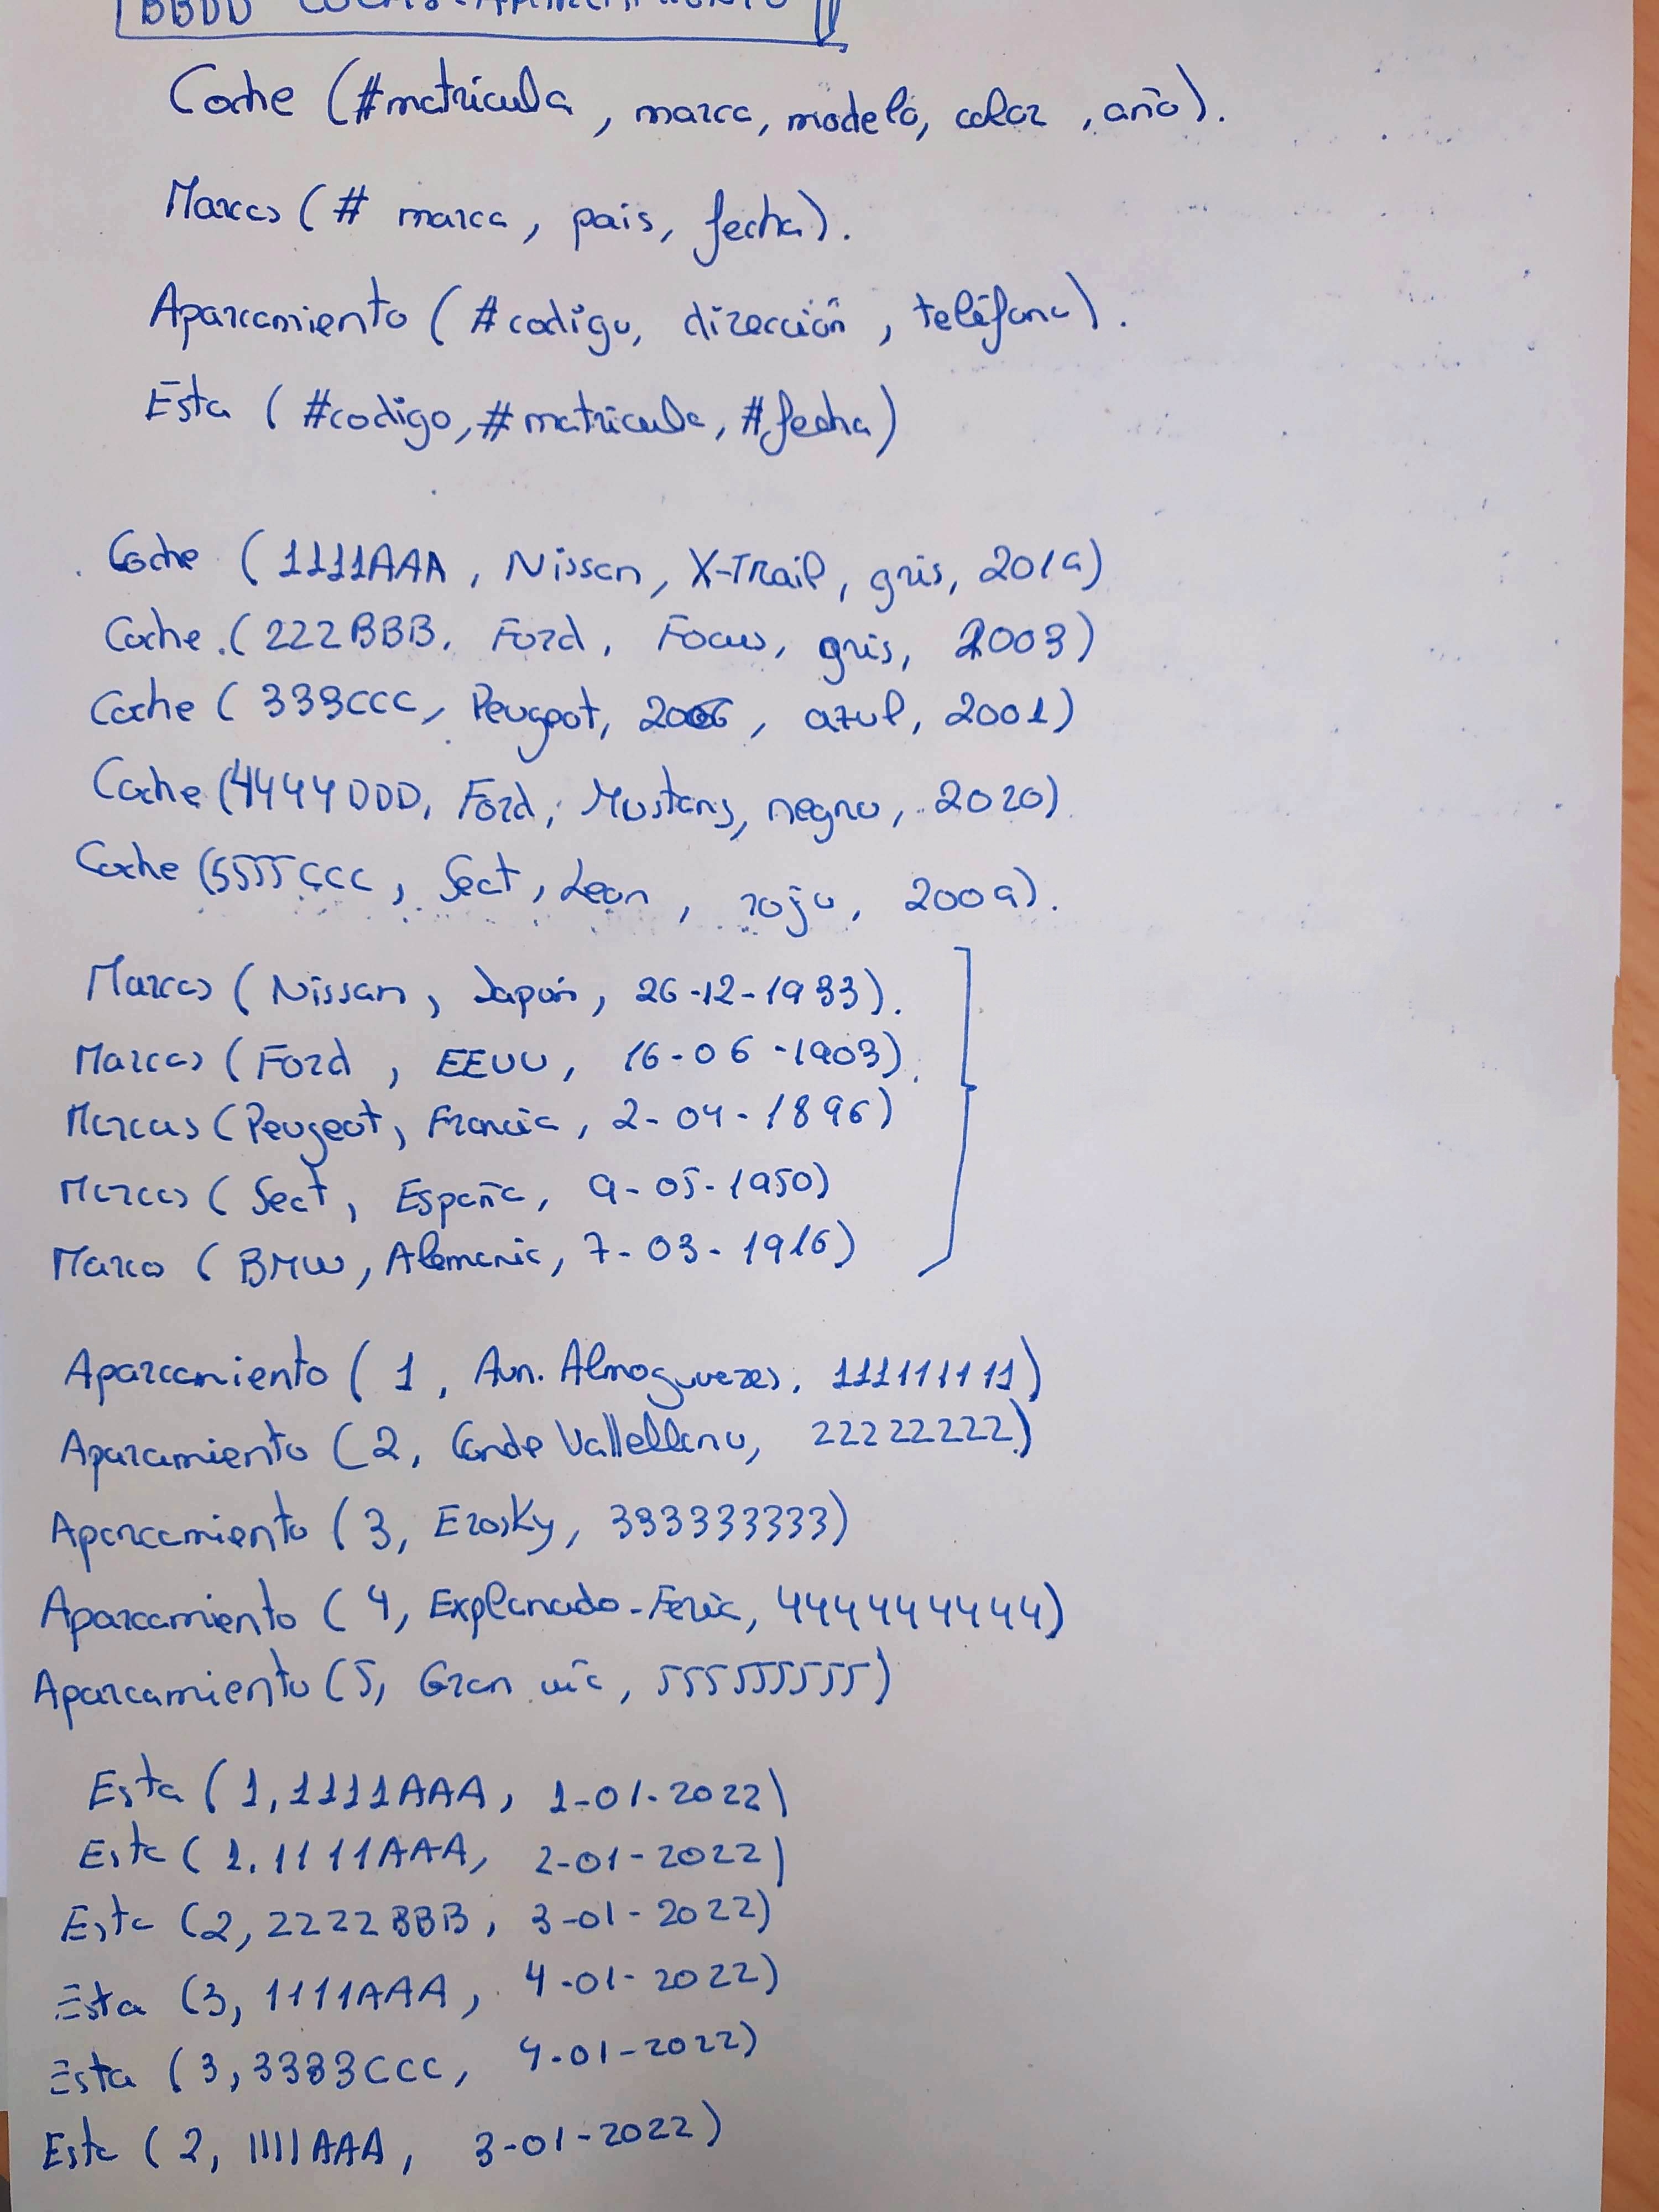 BBDD COCHES-APARCAMIENTO
Coche (#matricula, marca, modelo, color, año).
Marcas (# marca, pais, fecha).
Aparcamiento (#codigo, dirección, teléfono).
Esta (#codigo, #matricula, #fecha)
Coche (1111AAA, Nissan, X-Trail, gris, 2019)
Coche (222BBB, Ford, Focus, gris, 2003)
Coche (333CCC, Peugeot, 2006, azul, 2001)
Coche (4444DDD, Ford, Mustang, negro, 2020)
Coche (5555CCC, Seat, Leon, rojo, 2009).
Marcas (Nissan, Japón, 26-12-1933).
Marcas (Ford, EEUU, 16-06-1903).
Marcas (Peugeot, Francia, 2-04-1896)
Marcas (Seat, España, 9-05-1950)
Marca (BMW, Alemania, 7-03-1916)
Aparcamiento (1, Avn. Almogavares, 111111111)
Aparcamiento (2, Conde Vallellano, 22222222)
Aparcamiento (3, Erosky, 333333333)
Aparcamiento (4, Explanada-Feria, 444444444)
Aparcamiento (5, Gran vía, 555555555)
Esta (1, 1111AAA, 1-01-2022)
Esta (1, 1111AAA, 2-01-2022)
Esta (2, 2222BBB, 3-01-2022)
Esta (3, 1111AAA, 4-01-2022)
Esta (3, 3333CCC, 4-01-2022)
Esta (2, 1111AAA, 3-01-2022)